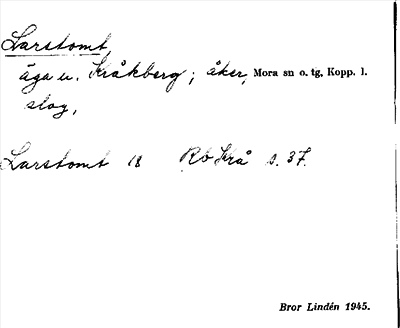 Larstomt,
äga u. Kråkberg; åker, Mora sn o. tg, Kopp. l.
slog,
Larstomt 18 Rb Krå s. 37.
Bror Lindén 1945.